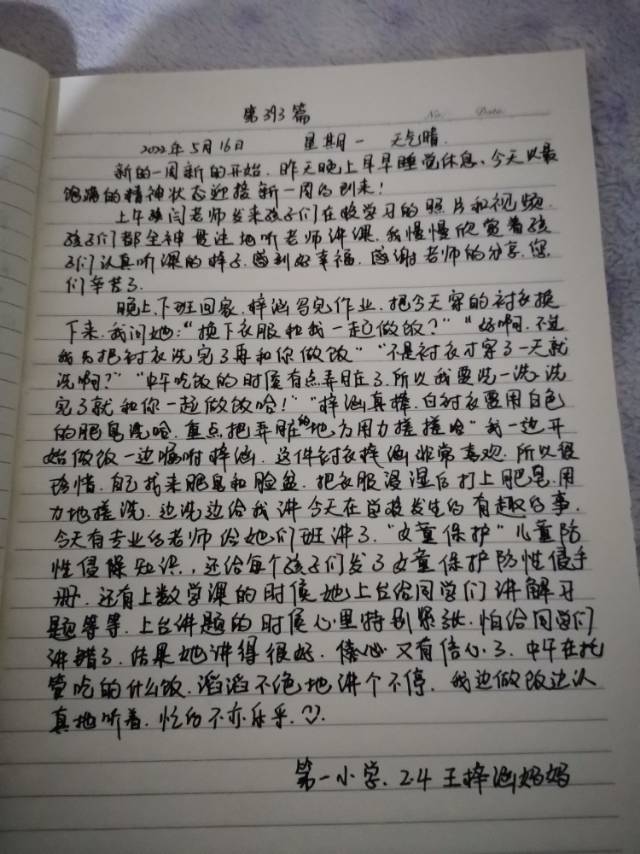 第393篇
No. Date.
2022年5月16日 星期一 天气晴.
新的一周新的开始. 昨天晚上早早睡觉休息、今天以最
饱满的精神状态迎接新一周的到来!
上午 闫老师发来孩子们在校学习的照片和视频.
孩子们都全神贯注地听老师讲课. 我慢慢欣赏着孩
子们认真听课的样子. 感到好幸福. 感谢老师的分享. 您
们辛苦了.
晚上下班回家. 梓涵写完作业. 把今天穿的衬衣换
下来. 我问她:"换下衣服和我一起做饭?" "好啊. 不过
我先把衬衣洗完了再和你做饭" "不是衬衣才穿了一天就
洗啊?" "中午吃饭的时候有点弄脏了. 所以我要洗一洗. 洗
完了就和你一起做饭哈!" "梓涵真棒. 白衬衣要用白色
的肥皂洗哈. 重点把弄脏的地方用力搓搓哈" 我一边开
始做饭一边嘱咐梓涵. 这件衬衣梓涵非常喜欢. 所以很
珍惜. 自己找来肥皂和脸盆. 把衣服浸湿后打上肥皂. 用
力地搓洗. 边洗边给我讲今天在学校发生的有趣的事.
今天有专业的老师给她们班讲了. "女童保护" 儿童防
性侵保知识, 还给每个孩子们发了女童保护防性侵手
册. 还有上数学课的时候她上台给同学们讲解习
题等等. 上台讲题的时候心里特别紧张. 怕给同学们
讲错了. 结果她讲得很好. 信心又有信心了. 中午在托
管吃的什么饭. 滔滔不绝地讲个不停. 我边做饭边认
真地听着. 忙的不亦乐乎.
第一小学. 2.4 王梓涵妈妈